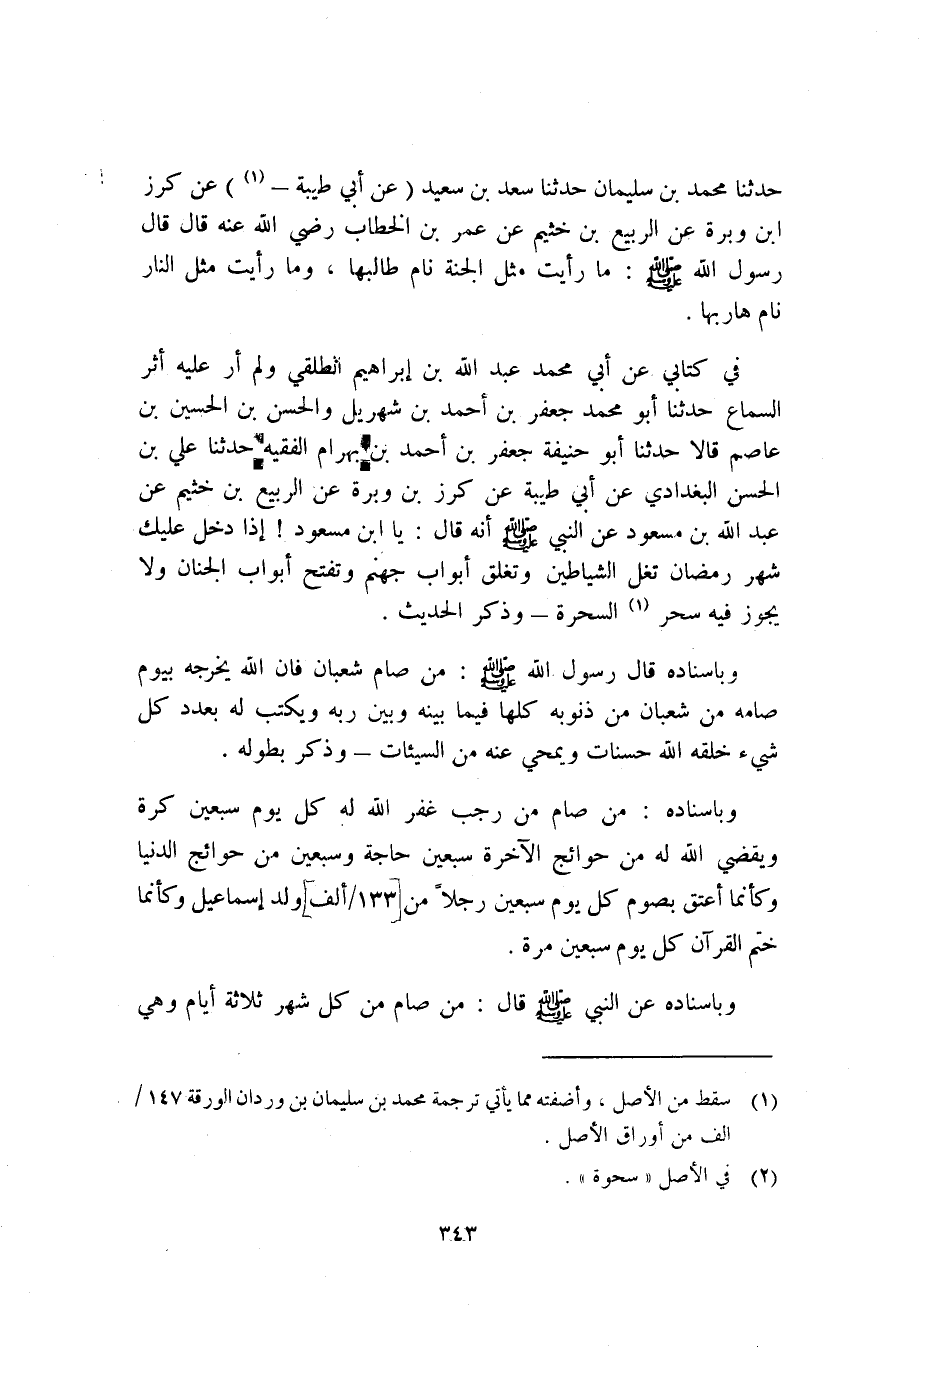 حدثنا محمد بن سليمان حدثنا سعد بن سعيد ( عن أبي طيبة – (١) ) عن كرز
ابن وبرة عن الربيع بن خثيم عن عمر بن الخطاب رضي الله عنه قال قال
رسول الله ﷺ : ما رأيت مثل الجنة نام طالبها ، وما رأيت مثل النار
نام هاربها .
في كتابي عن أبي محمد عبد الله بن إبراهيم الطلقي ولم أر عليه أثر
السماع حدثنا أبو محمد جعفر بن أحمد بن شهريل والحسن بن الحسين بن
عاصم قالا حدثنا أبو حنيفة جعفر بن أحمد بن بهرام الفقيه حدثنا علي بن
الحسن البغدادي عن أبي طيبة عن كرز بن وبرة عن الربيع بن خثيم عن
عبد الله بن مسعود عن النبي ﷺ أنه قال : يا ابن مسعود ! إذا دخل عليك
شهر رمضان تغل الشياطين وتغلق أبواب جهنم وتفتح أبواب الجنان ولا
يجوز فيه سحر (١) السحرة – وذكر الحديث .
وباسناده قال رسول الله ﷺ : من صام شعبان فان الله يخرجه بيوم
صامه من شعبان من ذنوبه كلها فيما بينه وبين ربه ويكتب له بعدد كل
شيء خلقه الله حسنات ويمحي عنه من السيئات – وذكر بطوله .
وباسناده : من صام من رجب غفر الله له كل يوم سبعين كرة
ويقضي الله له من حوائج الآخرة سبعين حاجة وسبعين من حوائج الدنيا
وكأنما أعتق بصوم كل يوم سبعين رجلاً من [١٣٣/ألف] ولد إسماعيل وكأنما
ختم القرآن كل يوم سبعين مرة .
وباسناده عن النبي ﷺ قال : من صام من كل شهر ثلاثة أيام وهي
(١) سقط من الأصل ، وأضفته مما يأتي ترجمة محمد بن سليمان بن وردان الورقة ١٤٧ /
الف من أوراق الأصل .
(٢) في الأصل « سحوة » .
٣٤٣